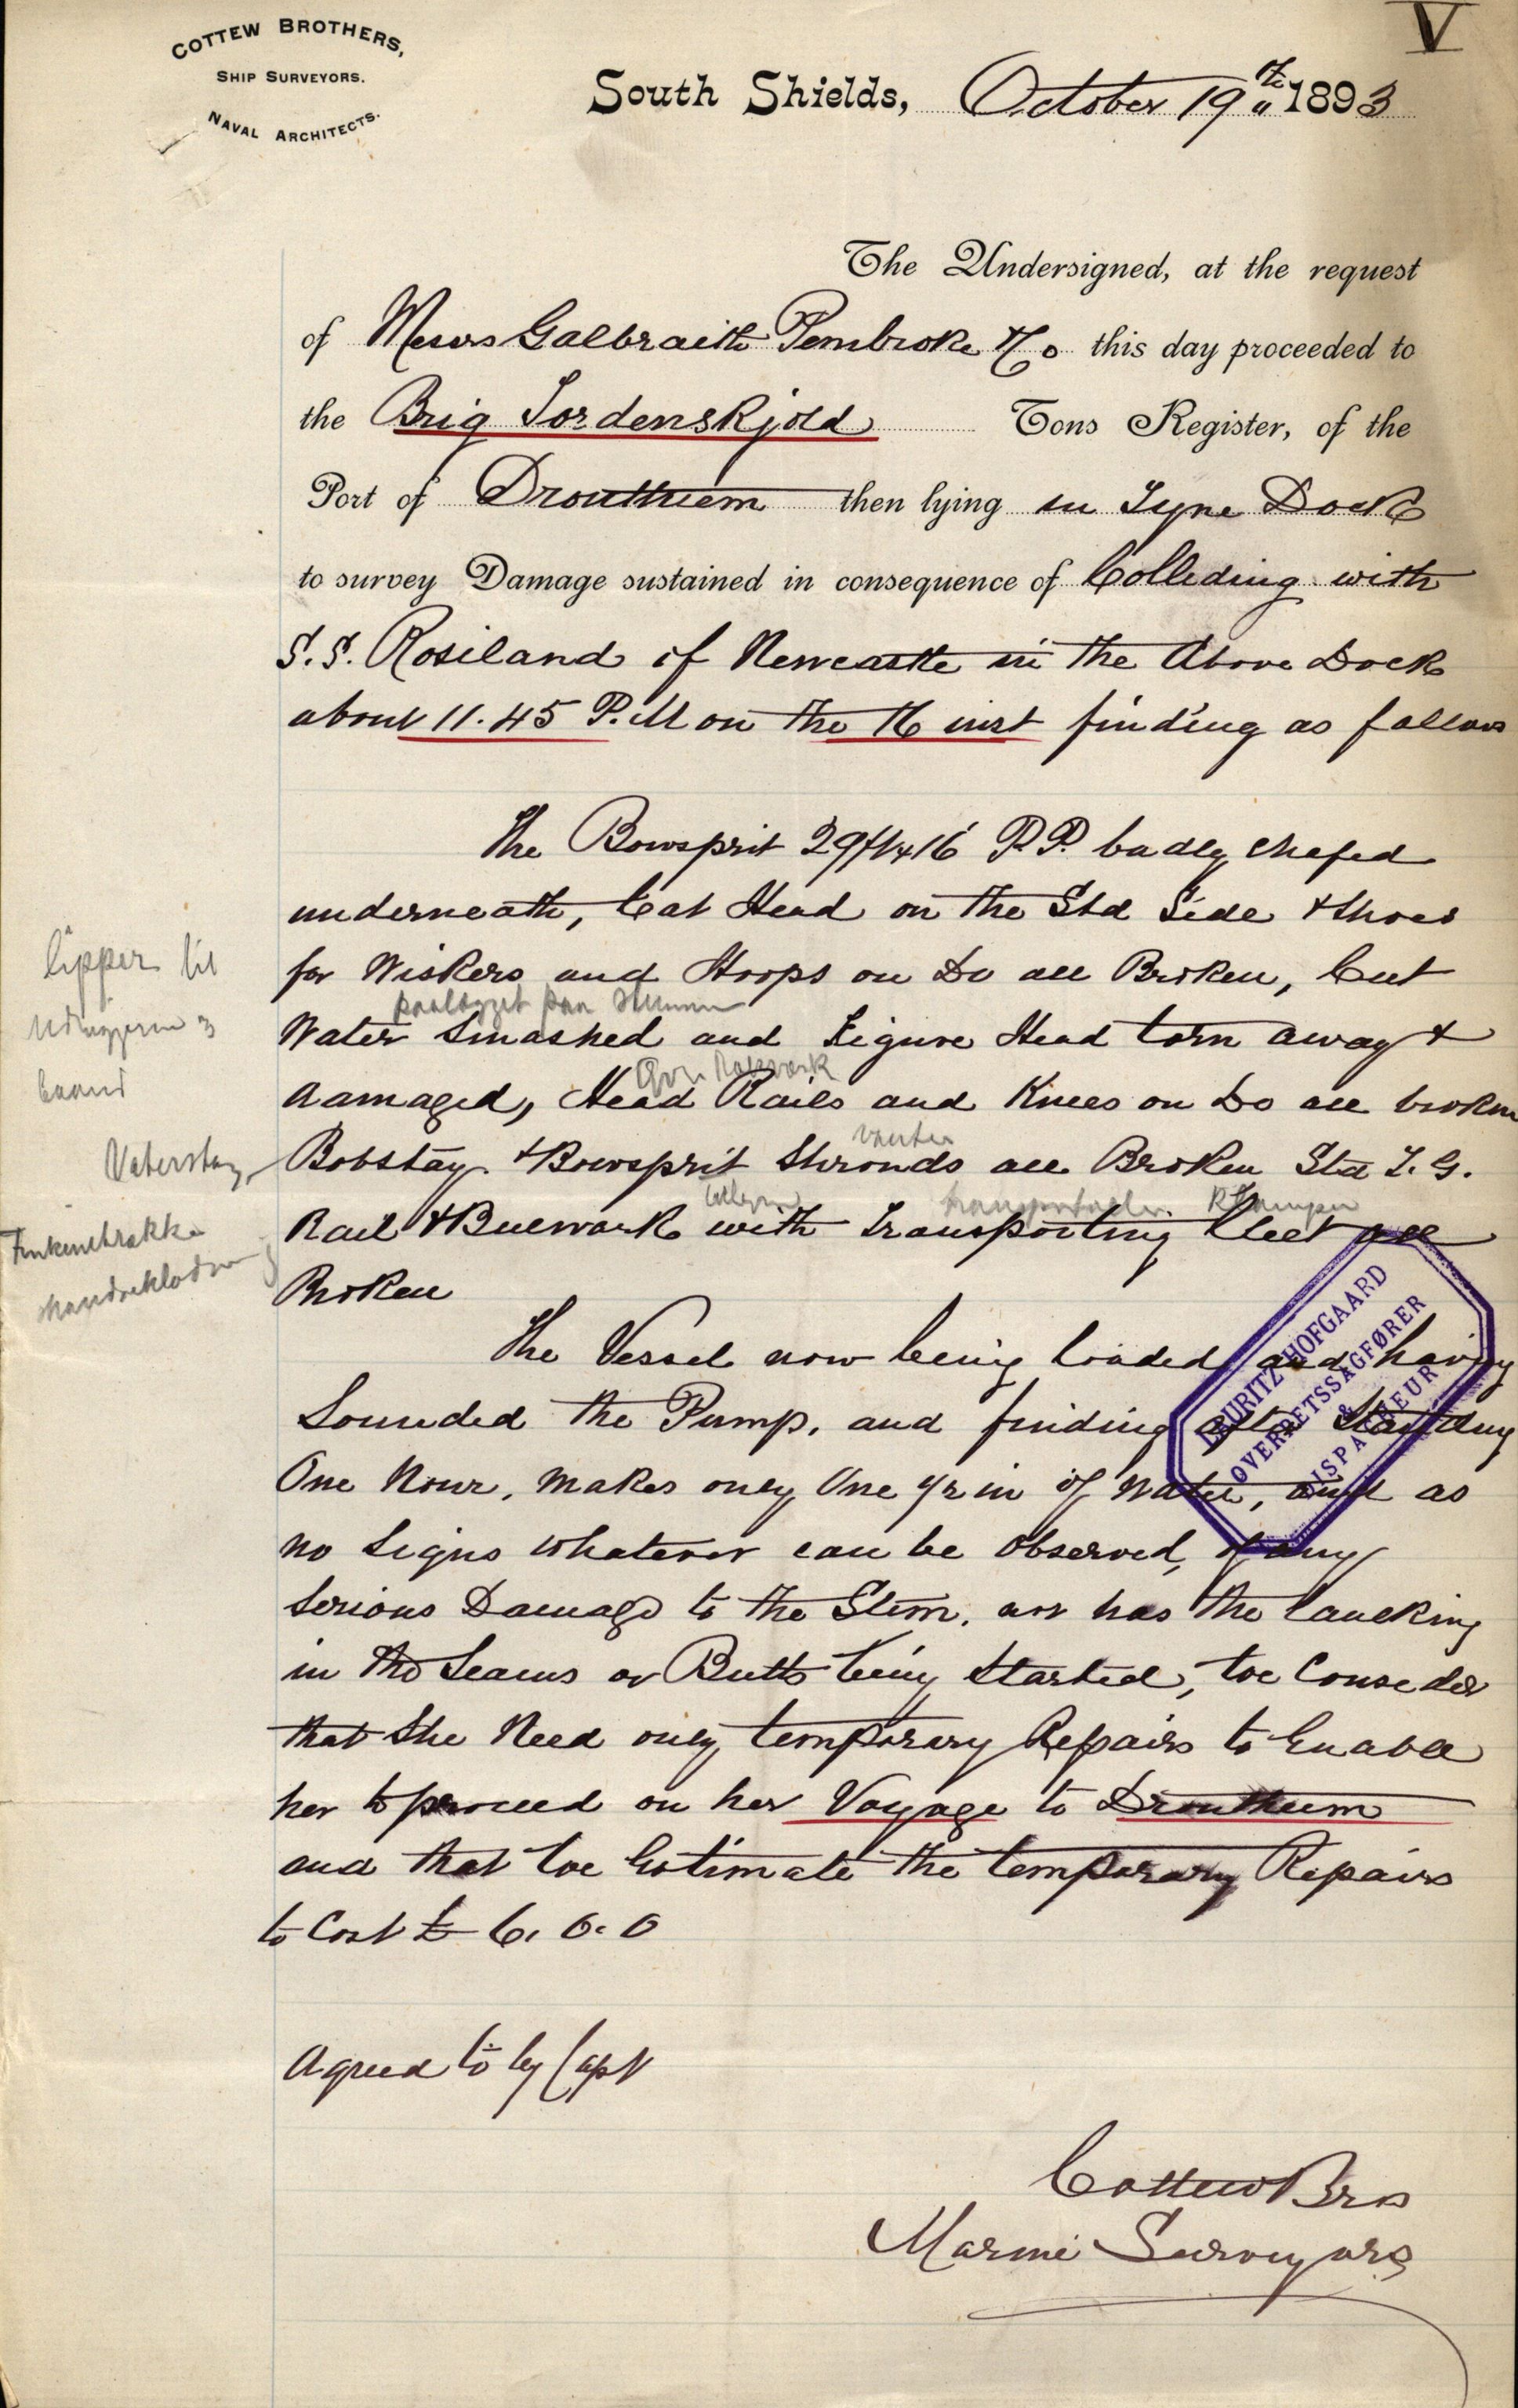 V
COTTEW BROTHERS,
SHIP SURVEYORS.
NAVAL ARCHITECTS.
South Shields, October 19th 1893
The Undersigned, at the request
of Messrs Galbraith Pembroke & Co this day proceeded to
the Brig Tordenskjold Tons Register, of the
Port of Drontheim then lying in Tyne Dock
to survey Damage sustained in consequence of Colleding with
S.S. Rosiland of Newcastle in the Above Dock
about 11.45 P.M on the 16 inst finding as follows
The Bowsprit 29ft x 16 P.P. badly chafed
underneath, Cat Head on the Std Side & Shoes
for Wiskers and Hoops on Do all Broken, Cut
paalægget paa
Water Smashed and Figure Head torn away &
damaged, Head Rails and Knees on Do all broken
vanter
Bobstay & Bowsprit Shrouds all Broken Std T.G.
Rail & Bulwark with Transporting Cleet all
Broken
lipper til
baand
Vaterstag
The Vessel now being loaded and having
Sounded the Pump, and finding after Standing
One Hour, makes only One 1/2 in of Water, and as
no Signs whatever can be Observed, of any
Serious Damage to the Stem, nor has the Caulking
in the Seams or Butts being Started, we Conseder
that She Need only temporary Repairs to Enable
her to proceed on her Voyage to Drontheim
and that we Estimate the temporary Repairs
to Cost £ 6. 0. 0
LAURITZ HOFGAARD
OVERRETSSAGFØRER
&
DISPACHEUR
Agreed to by Capt
Cottew Bros
Marine Surveyors